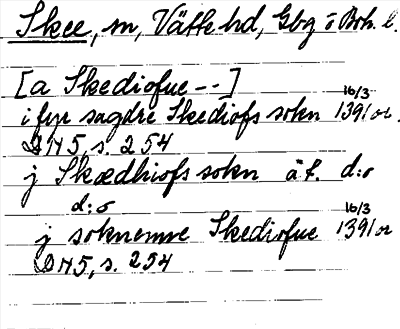 Skee, sn, Vätte hd, Gbg o Boh. l.
[a Skediofue --]
i fyr sagdre Skediofs sokn 16/3 1391 or.
DN 5, s. 254
j Skædhiofs sokn ä.f. d:o
d:o
j soknenne Skediofue 16/3 1391 or
DN 5, s. 254